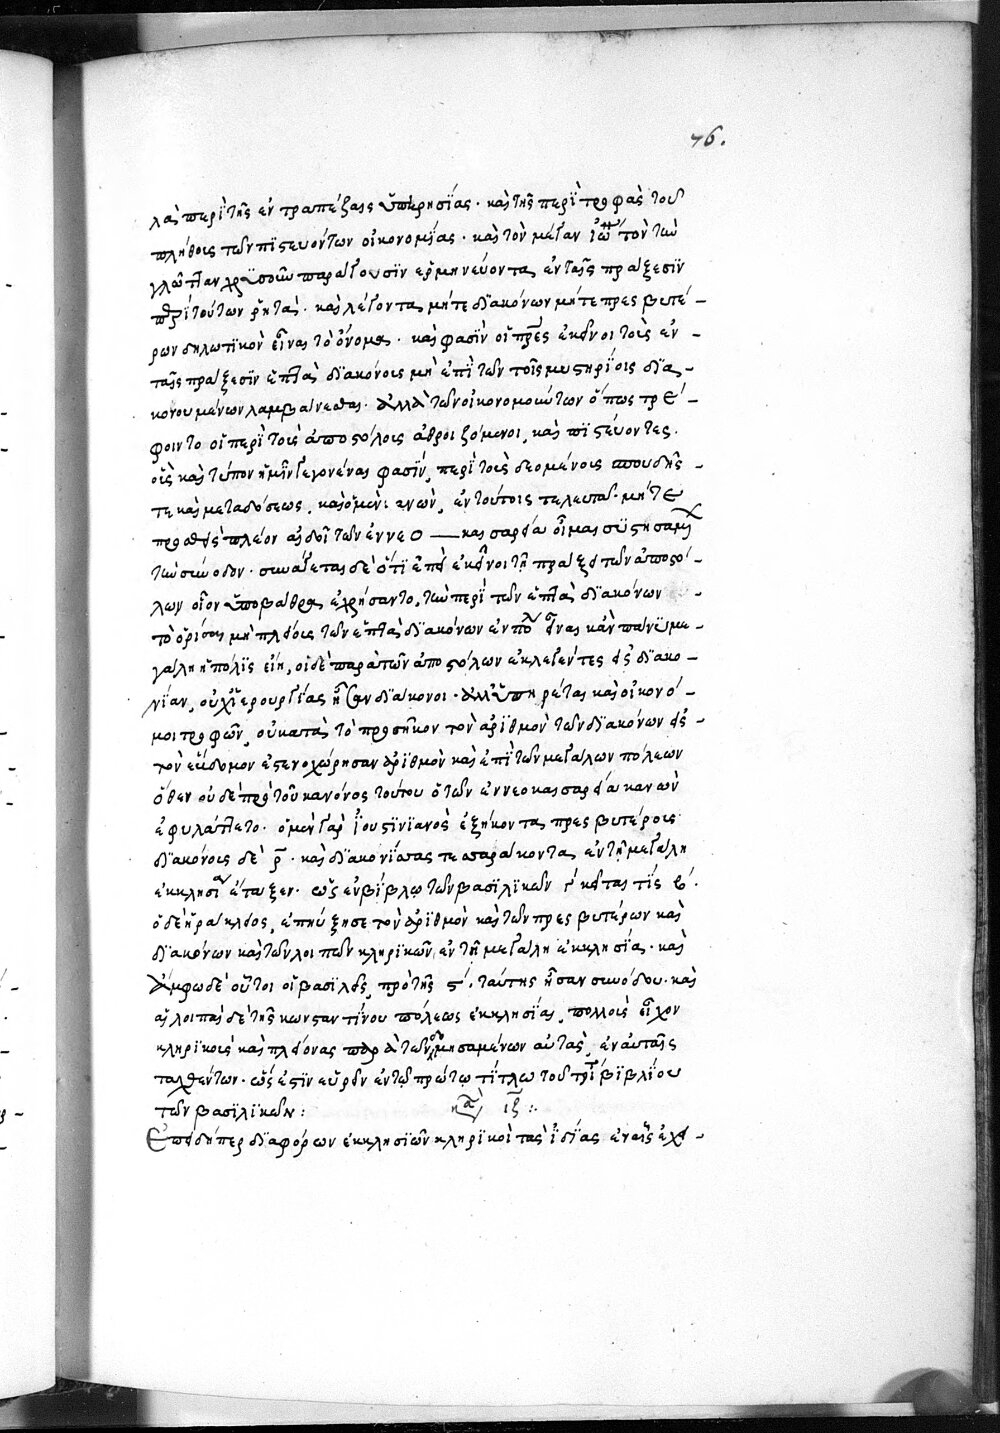 76.
λὰ περὶ τῆς ἐν τραπέζαις ὑπηρεσίας. καὶ τῆς περὶ τροφὰς τοῦ
πλήθους τῶν πιστευόντων οἰκονομίας. καὶ τὸν μέγαν Ἰω τὸν τὴν
γλῶτταν χρυσοῦν παράγουσιν ἑρμηνεύοντα, ἐν ταῖς πράξεσιν
περὶ τούτων ῥητά. καὶ λέγοντα, μήτε διακόνων μήτε πρεσβυτέ-
ρων δηλωτικὸν εἶναι τὸ ὄνομα. καὶ φασὶν οἱ πρες ἐκεῖνοι τοὺς ἐν-
ταῖς πράξεσιν ἑπτὰ διακόνους μὴ ἐπὶ τῶν τοῖς μυστηρίοις δια-
κονουμένων λαμβάνεσθαι. ἀλλὰ τῶν οἰκονομούντων ὅπως τρέ-
φοιντο οἱ περὶ τοὺς ἀποστόλους ἀθροιζόμενοι, καὶ πιστεύοντες.
οὓς καὶ τύπον ἡμῖν γεγονέναι φασίν, περὶ τοὺς δεομένους σπουδῆς
τε καὶ μεταδόσεως, καὶ ὁ μὲν κανὼν, ἐν τούτοις τελευτᾷ. μήτε
προσθεὶς πλέον αἰδοῖ τῶν ἐννεο — καισαρείᾳ οἶμαι συστησαμένων
τὴν σύνοδον. συνάγεται δὲ ὅτι ἐπεὶ ἐκεῖνοι τῇ πράξει τῶν ἀποστό-
λων οἷον ὑποβάθρᾳ ἐχρήσαντο, τὴν περὶ τῶν ἑπτὰ διακόνων
τὸ ὁρίσαι μὴ πλείους τῶν ἑπτὰ διακόνων ἐν πόλει εἶναι κἂν πάνυ με-
γάλη ἡ πόλις εἴη, οἱ δὲ παρὰ τῶν ἀποστόλων ἐκλεγέντες εἰς διακο-
νίαν, οὐχ ἱερουργίας ἦσαν διάκονοι. ἀλλ' ὑπηρέται καὶ οἰκονό-
μοι τροφῶν, οὐ κατὰ τὸ προσῆκον τὸν ἀριθμὸν τῶν διακόνων εἰς
τὸν ἕβδομον ἐστενοχώρησαν ἀριθμὸν καὶ ἐπὶ τῶν μεγάλων πόλεων
ὅθεν οὐδὲ πρὸ τοῦ κανόνος τούτου ὁ τῶν ἐννεοκαισαρείᾳ κανὼν
ἐφυλάττετο. ὁ μὲν γὰρ Ἰουστινιανὸς ἑξήκοντα, πρεσβυτέρους
διακόνους δὲ ρ. καὶ διακονίσσας τεσσαράκοντα, ἐν τῇ μεγάλῃ
ἐκκλησίᾳ ἔταξεν. ὡς ἐν βίβλῳ τῶν βασιλικῶν γ κεῖται τίς β.
ὁ δὲ ἡράκλειος, ἐπηύξησε τὸν ἀριθμὸν καὶ τῶν πρεσβυτέρων καὶ
διακόνων καὶ τῶν λοιπῶν κληρικῶν, ἐν τῇ μεγάλῃ ἐκκλησίᾳ. καὶ
ἄμφω δὲ οὗτοι οἱ βασιλεῖς, πρὸ τῆς ϛ. ταύτης ἦσαν συνόδου. καὶ
αἱ λοιπαὶ δὲ τῆς κωνσταντίνου πόλεως ἐκκλησίαι, πολλοὺς εἶχον
κληρικοὺς καὶ πλείονας παρὰ τῶν κτησαμένων αὐτὰς, ἐν αὐταῖς
ταχθέντων. ὥς ἐστιν εὑρεῖν ἐν τῷ πρώτῳ τίτλῳ τοῦ τρί βιβλίου
τῶν βασιλικῶν: κα ιζ:
Ἐπειδήπερ διαφόρων ἐκκλησιῶν κληρικοὶ τὰς ἰδίας ἐν αἷς ἐχει-